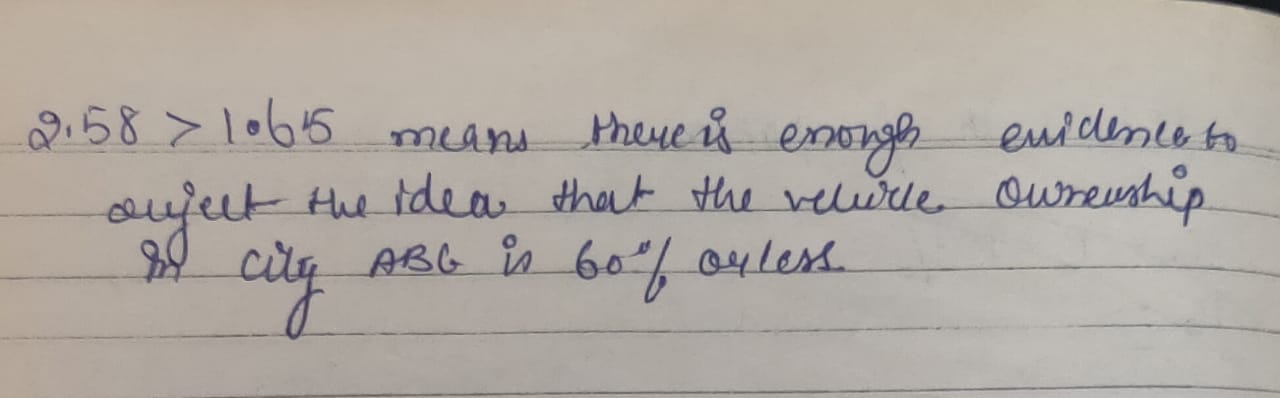 2.58 > 1.645 means there is enough evidence to
reject the idea that the vehicle ownership
in city ABG is 60% or less